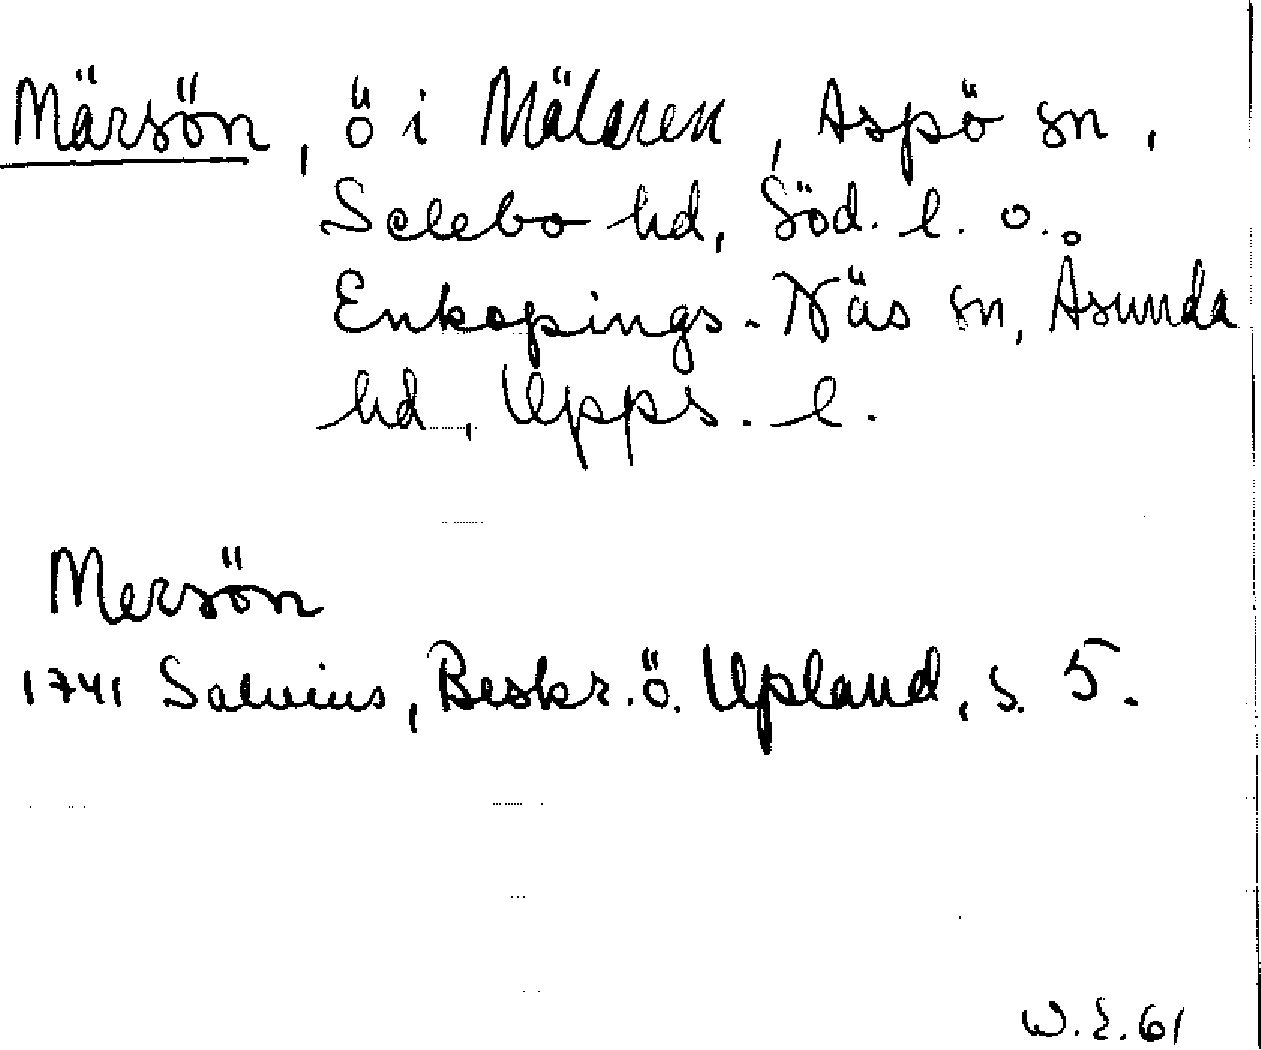 Märsön, ö i Mälaren, Aspö sn,
Selebo hd, Söd. l. o.
Enkopings-Näs sn, Åsunda
hd, Upps. l.
Mersön
1741 Salvius, Beskr. ö. Upland, s. 5.
W.E.61